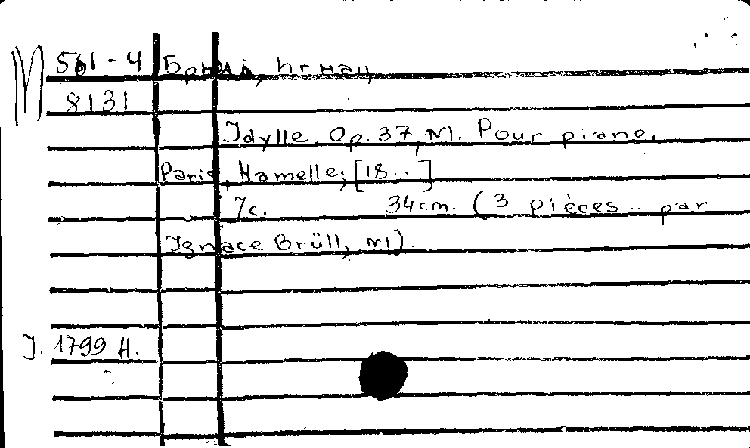 M 561-4 Брюль, Игнац
8131
Idylle. Op. 37, N1. Pour piano.
Paris, Hamelle, [18..]
7c. 34cm. (3 pièces.. par
Ignace Brüll, N1).
J. 1799 H.